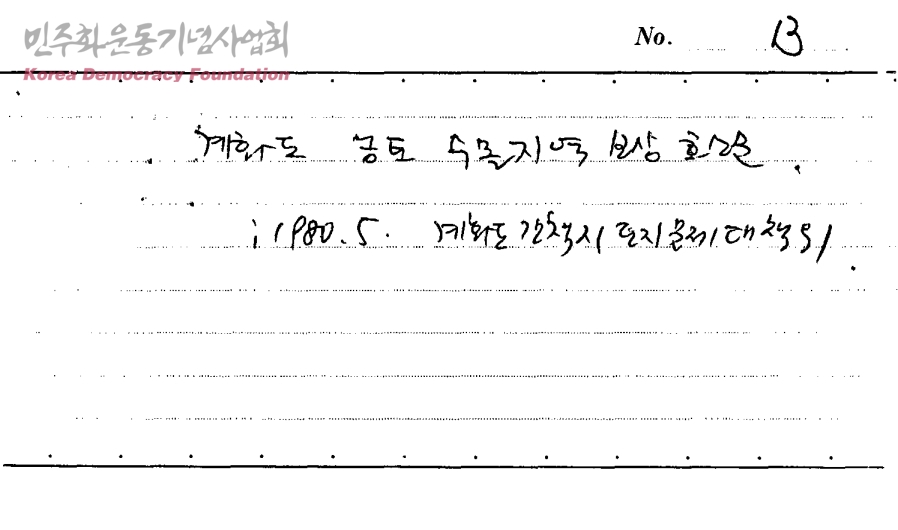 민주화운동기념사업회
Korea Democracy Foundation
No. B
계화도 농토 수몰지역 보상 호소문
; 1980. 5. 계화도 간척지 토지문제대책위